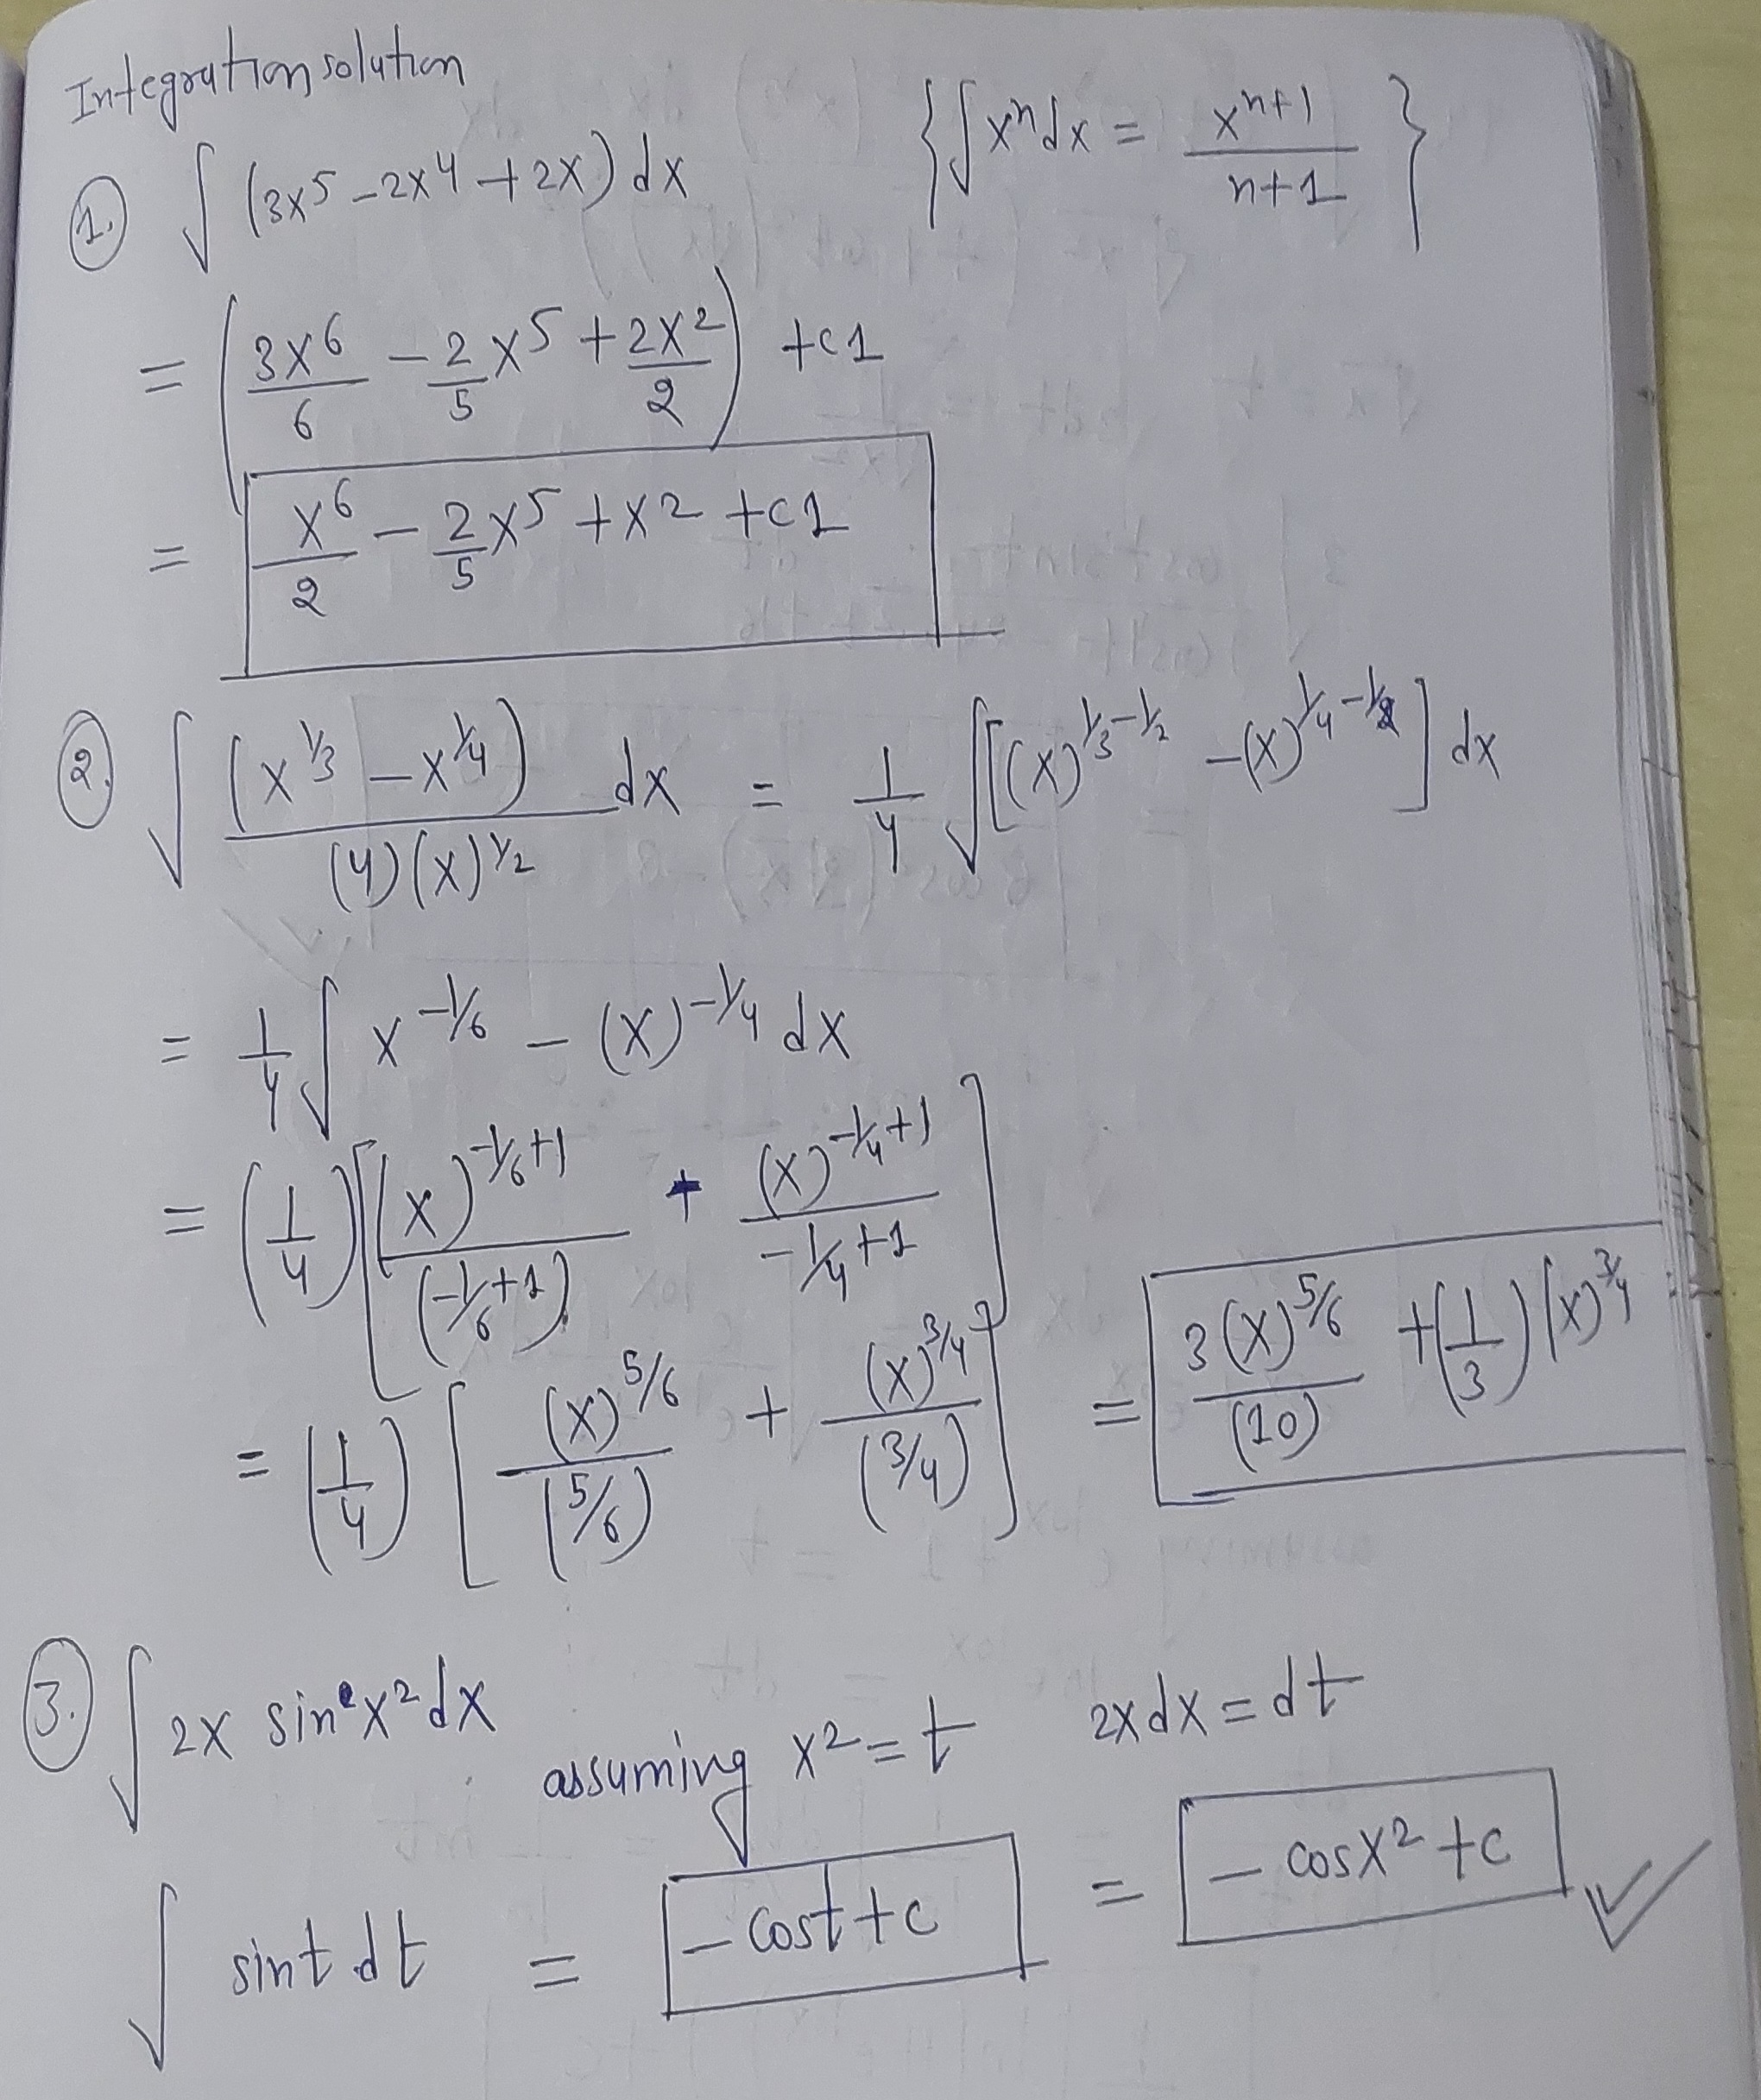 Integration solution
{∫xⁿdx = xⁿ⁺¹/(n+1)}
1. ∫(3x⁵ - 2x⁴ + 2x)dx
= (3x⁶/6 - 2/5 x⁵ + 2x²/2) + c1
= x⁶/2 - 2/5 x⁵ + x² + c1
2. ∫ (x^(1/3) - x^(1/4))/((4)(x)^(1/2)) dx = 1/4 ∫[(x)^(1/3-1/2) - (x)^(1/4-1/2)] dx
= 1/4 ∫ x^(-1/6) - (x)^(-1/4) dx
= (1/4)[(x)^(-1/6+1)/(-1/6+1) + (x)^(-1/4+1)/(-1/4+1)]
= (1/4)[(x)^(5/6)/(5/6) + (x)^(3/4)/(3/4)] = 3(x)^(5/6)/(10) + (1/3)(x)^(3/4)
3. ∫ 2x sin x² dx assuming x² = t 2x dx = dt
∫ sint dt = -cost + c = -cosx² + c